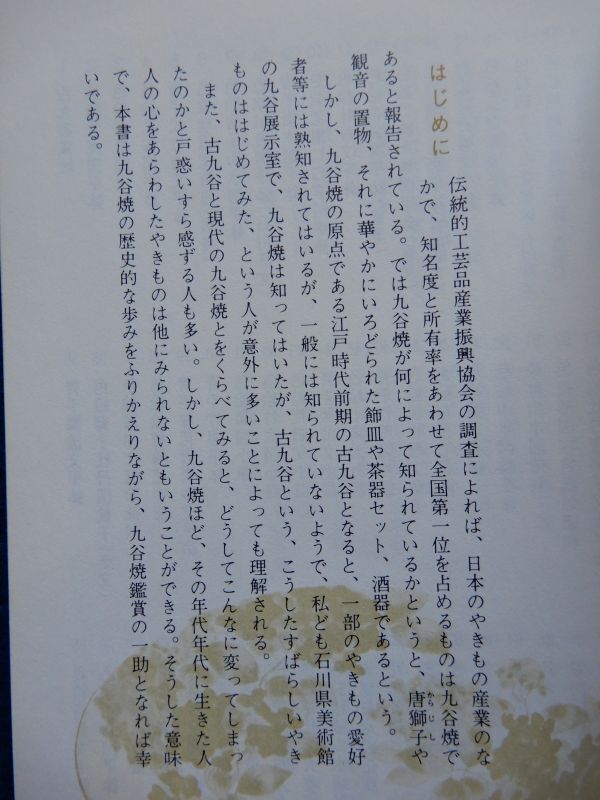 はじめに
伝統的工芸品産業振興協会の調査によれば、日本のやきもの産業のな
かで、知名度と所有率をあわせて全国第一位を占めるものは九谷焼で
あると報告されている。では九谷焼が何によって知られているかというと、唐獅子や
からじし
観音の置物、それに華やかにいろどられた飾皿や茶器セット、酒器であるという。
しかし、九谷焼の原点である江戸時代前期の古九谷となると、一部のやきもの愛好
者等には熟知されてはいるが、一般には知られていないようで、私ども石川県美術館
の九谷展示室で、九谷焼は知ってはいたが、古九谷という、こうしたすばらしいやき
ものははじめてみた、という人が意外に多いことによっても理解される。
また、古九谷と現代の九谷焼とをくらべてみると、どうしてこんなに変ってしまっ
たのかと戸惑いすら感ずる人も多い。しかし、九谷焼ほど、その年代年代に生きた人
人の心をあらわしたやきものは他にみられないともいうことができる。そうした意味
で、本書は九谷焼の歴史的な歩みをふりかえりながら、九谷焼鑑賞の一助となれば幸
いである。